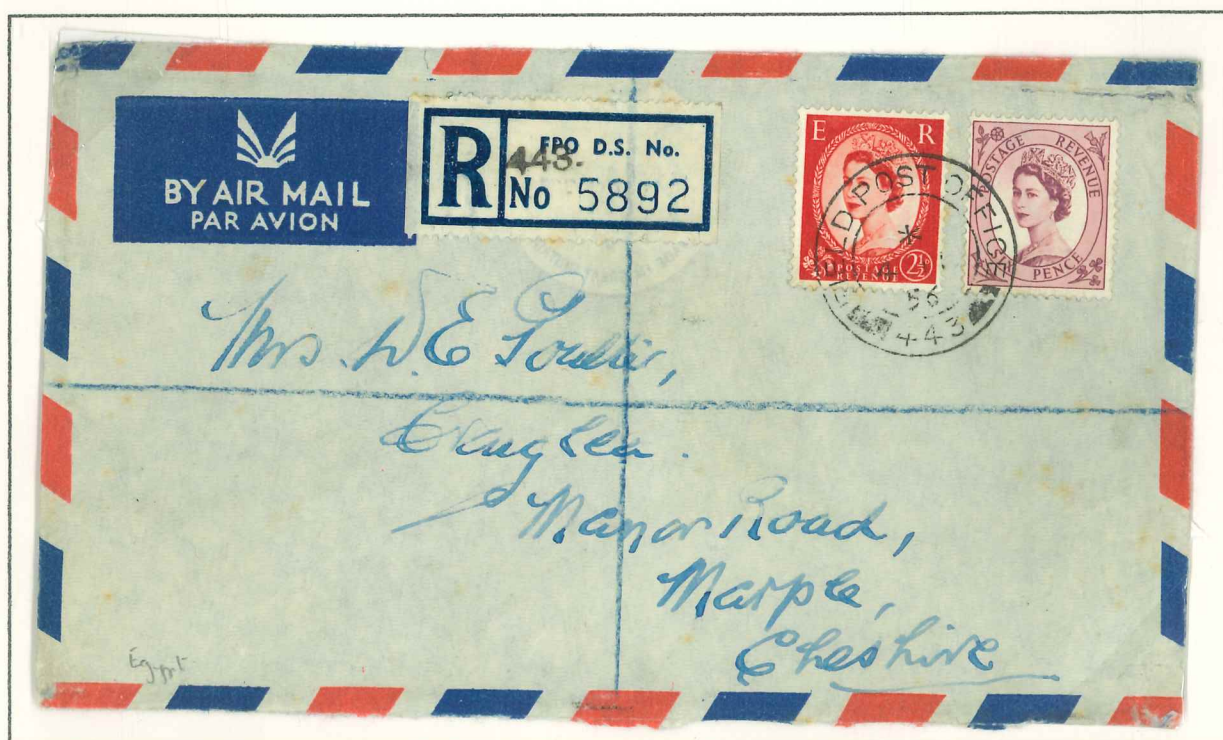 BY AIR MAIL
PAR AVION
R
FPO D.S. No.
443.
No 5892
E R
POSTAGE
REVENUE
2½D
POSTAGE REVENUE
PENCE
FIELD POST OFFICE
56
443
Mrs. W. E.
Manor Road,
Marple,
Cheshire
Egypt